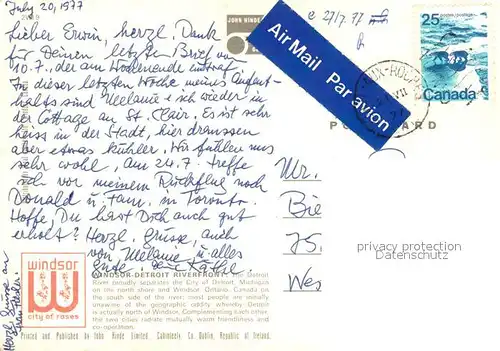 July 20, 1977
Lieber Erwin, herzl. Dank
für Deinen letzten Brief v.
10.7., der am Wochenende eintraf.
In dieser letzten Woche meines Aufent-
halts sind Melanie + ich wieder in
der Cottage am St. Clair. Es ist sehr
heiss in der Stadt, hier draussen
aber etwas kühler. Wir fühlen uns
sehr wohl. Am 24.7. treffe
ich vor meinem Rückflug noch
Donald u. Fam. in Toronto.
Hoffe, Du hast Dich auch gut
erholt? Herzl. Grüsse, auch
von Melanie u. alles
Gute Käthe
Herzl. Grüsse an
JOHN HINDE
27/7.77
Air Mail Par avion
25
Canada
POSTCARD
Mr.
Bie
75.
Wes
privacy protection
Datenschutz
windsor
city of roses
WINDSOR-DETROIT RIVERFRONT: The Detroit
River proudly separates the City of Detroit, Michigan
on the north shore and Windsor, Ontario, Canada on
the south side of the river; most people are usually
unaware of the geographic oddity whereby Detroit
is actually north of Windsor. Complementing each other
the two cities radiate mutually warm friendliness and
co-operation.
Printed and Published by John Hinde Limited, Cabinteely, Co. Dublin, Republic of Ireland.